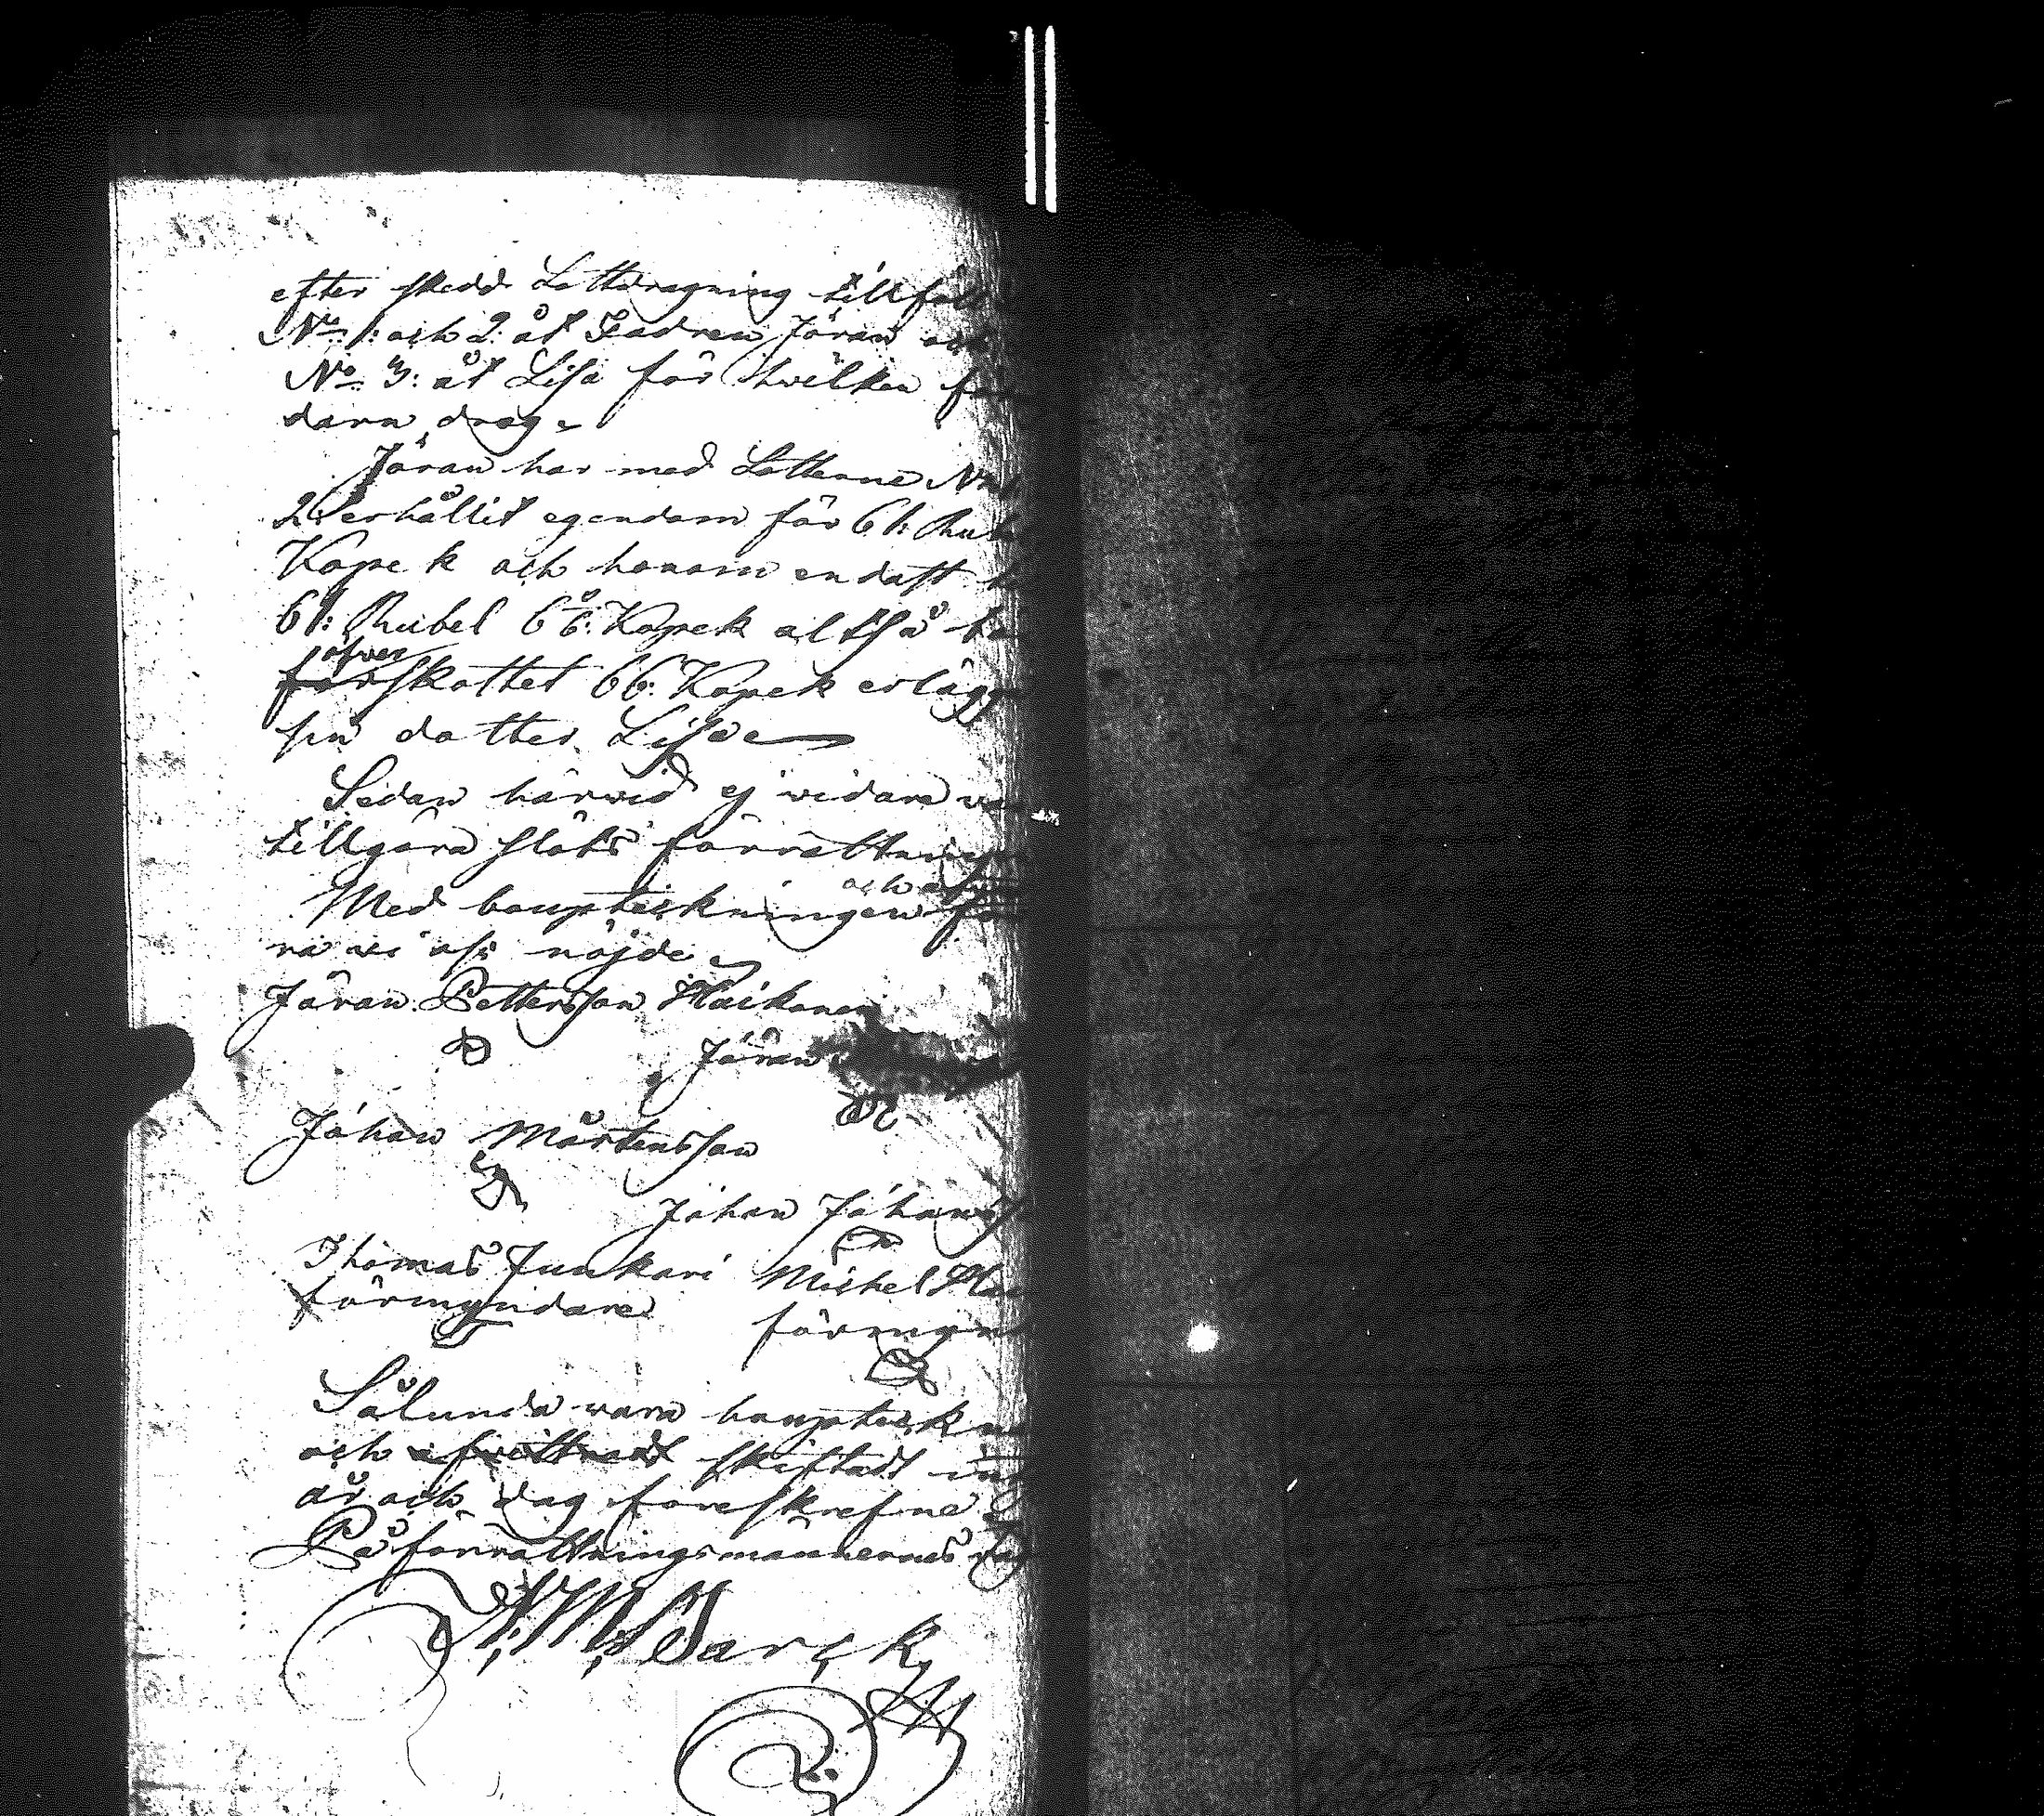 efter skedd Lottdragning tillföll
No 1: och 2: åt Fadren Jöran och
No 3: åt Lisa för hwilken fa
dern drog.
Jöran har med Lotterne No
2 erhållit egendom för 61: Rub
Kopek och honom endast
61: Rubel 66: Kopek altså
öfver
förskottet 66: Kopek erlägg
sin dotter Lisa
Sedan härwid ej widare war
tillgöra slöts förrättningen
och
Med bouptekningen
ra wi oss nöjde
Jöran Pettersson Haikonen
Jöran
Johan Mårtensson
Johan Johans
Thomas Junkari Michel
förmyndare
förmyn
Sålunda vara bouptekn
och skiftadt
år och dag föreskrefne
På förrättningsmännernas wäg